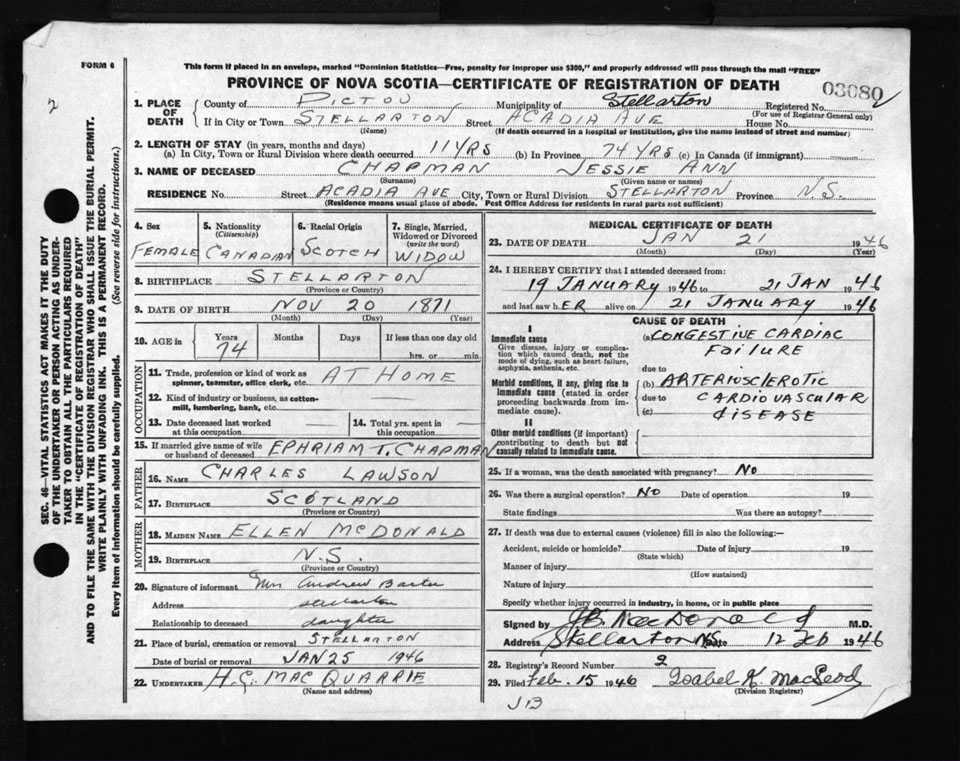 FORM 6
This form if placed in an envelope, marked "Dominion Statistics—Free, penalty for improper use $300," and properly addressed will pass through the mail "FREE"
PROVINCE OF NOVA SCOTIA—CERTIFICATE OF REGISTRATION OF DEATH
03080
2
1. PLACE OF DEATH
County of PICTOU Municipality of Stellarton Registered No.
(For use of Registrar General only)
If in City or Town STELLARTON Street ACADIA AVE House No.
(Name) (If death occurred in a hospital or institution, give the name instead of street and number)
2. LENGTH OF STAY (in years, months and days)
(a) In City, Town or Rural Division where death occurred 11 YRS (b) In Province 74 YRS (c) In Canada (if immigrant)
3. NAME OF DECEASED CHAPMAN JESSIE ANN
(Surname) (Given name or names)
RESIDENCE No. Street ACADIA AVE City, Town or Rural Division STELLARTON Province N.S.
(Residence means usual place of abode. Post Office Address for residents in rural parts not sufficient)
4. Sex
FEMALE
5. Nationality
(Citizenship)
CANADIAN
6. Racial Origin
SCOTCH
7. Single, Married, Widowed or Divorced
(write the word)
WIDOW
8. BIRTHPLACE STELLARTON
(Province or Country)
9. DATE OF BIRTH NOV 20 1871
(Month) (Day) (Year)
10. AGE in
Years Months Days If less than one day old
74 hrs. or min.
OCCUPATION
11. Trade, profession or kind of work as spinner, teamster, office clerk, etc. AT HOME
12. Kind of industry or business, as cotton-mill, lumbering, bank, etc. —
13. Date deceased last worked at this occupation —
14. Total yrs. spent in this occupation —
15. If married give name of wife or husband of deceased EPHRIAM T. CHAPMAN
FATHER
16. Name CHARLES LAWSON
17. BIRTHPLACE SCOTLAND
(Province or Country)
MOTHER
18. MAIDEN NAME ELLEN McDONALD
19. BIRTHPLACE N.S.
(Province or Country)
20. Signature of informant Mrs Andrew Baxter
Address Stellarton
Relationship to deceased daughter
21. Place of burial, cremation or removal STELLARTON
Date of burial or removal JAN 25 1946
22. UNDERTAKER H.G. MAC QUARRIE
(Name and address)
MEDICAL CERTIFICATE OF DEATH
23. DATE OF DEATH JAN 21 1946
(Month) (Day) (Year)
24. I HEREBY CERTIFY that I attended deceased from:
19 JANUARY 1946 to 21 JAN 1946
and last saw hER alive on 21 JANUARY 1946
CAUSE OF DEATH
I
Immediate cause
Give disease, injury or complication which caused death, not the mode of dying, such as heart failure, asphyxia, asthenia, etc.
(a) CONGESTIVE CARDIAC
FAILURE
due to
Morbid conditions, if any, giving rise to immediate cause (stated in order proceeding backwards from immediate cause).
(b) ARTERIOSCLEROTIC
due to CARDIOVASCULAR
(c) DISEASE
II
Other morbid conditions (if important) contributing to death but not causally related to immediate cause.
25. If a woman, was the death associated with pregnancy? NO
26. Was there a surgical operation? NO Date of operation 19
State findings Was there an autopsy?
27. If death was due to external causes (violence) fill in also the following:—
Accident, suicide or homicide? Date of injury 19
(State which)
Manner of injury
(How sustained)
Nature of injury
Specify whether injury occurred in industry, in home, or in public place
Signed by JB. MacDonald M.D.
Address Stellarton NS Date 12 Feb 1946
28. Registrar's Record Number 2
29. Filed Feb. 15 1946 Isabel K. MacLeod
(Division Registrar)
J 13
SEC. 46—VITAL STATISTICS ACT MAKES IT THE DUTY
OF THE UNDERTAKER OR PERSON ACTING AS UNDER-
TAKER TO OBTAIN ALL THE PARTICULARS REQUIRED
IN THE "CERTIFICATE OF REGISTRATION OF DEATH"
AND TO FILE THE SAME WITH THE DIVISION REGISTRAR WHO SHALL ISSUE THE BURIAL PERMIT.
WRITE PLAINLY WITH UNFADING INK. THIS IS A PERMANENT RECORD.
Every item of information should be carefully supplied. (See reverse side for instructions.)